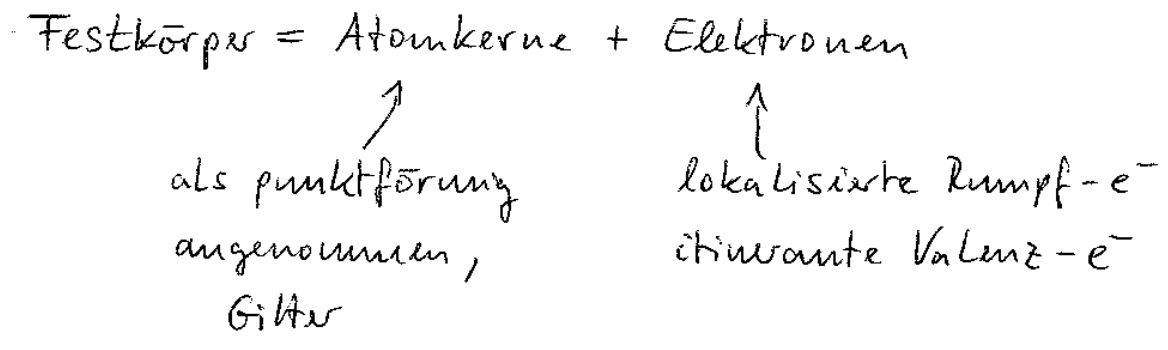 Festkörper = Atomkerne + Elektronen
als punktförmig
angenommen,
Gitter
lokalisierte Rumpf-e⁻
itinerante Valenz-e⁻